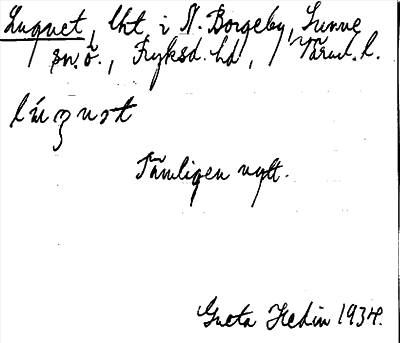 Luquet, lht. i N. Borgeby, Sunne
sn. ö., Fryksd. hd, Värml. l.
Tämligen nytt.
Greta Hedin 1934.